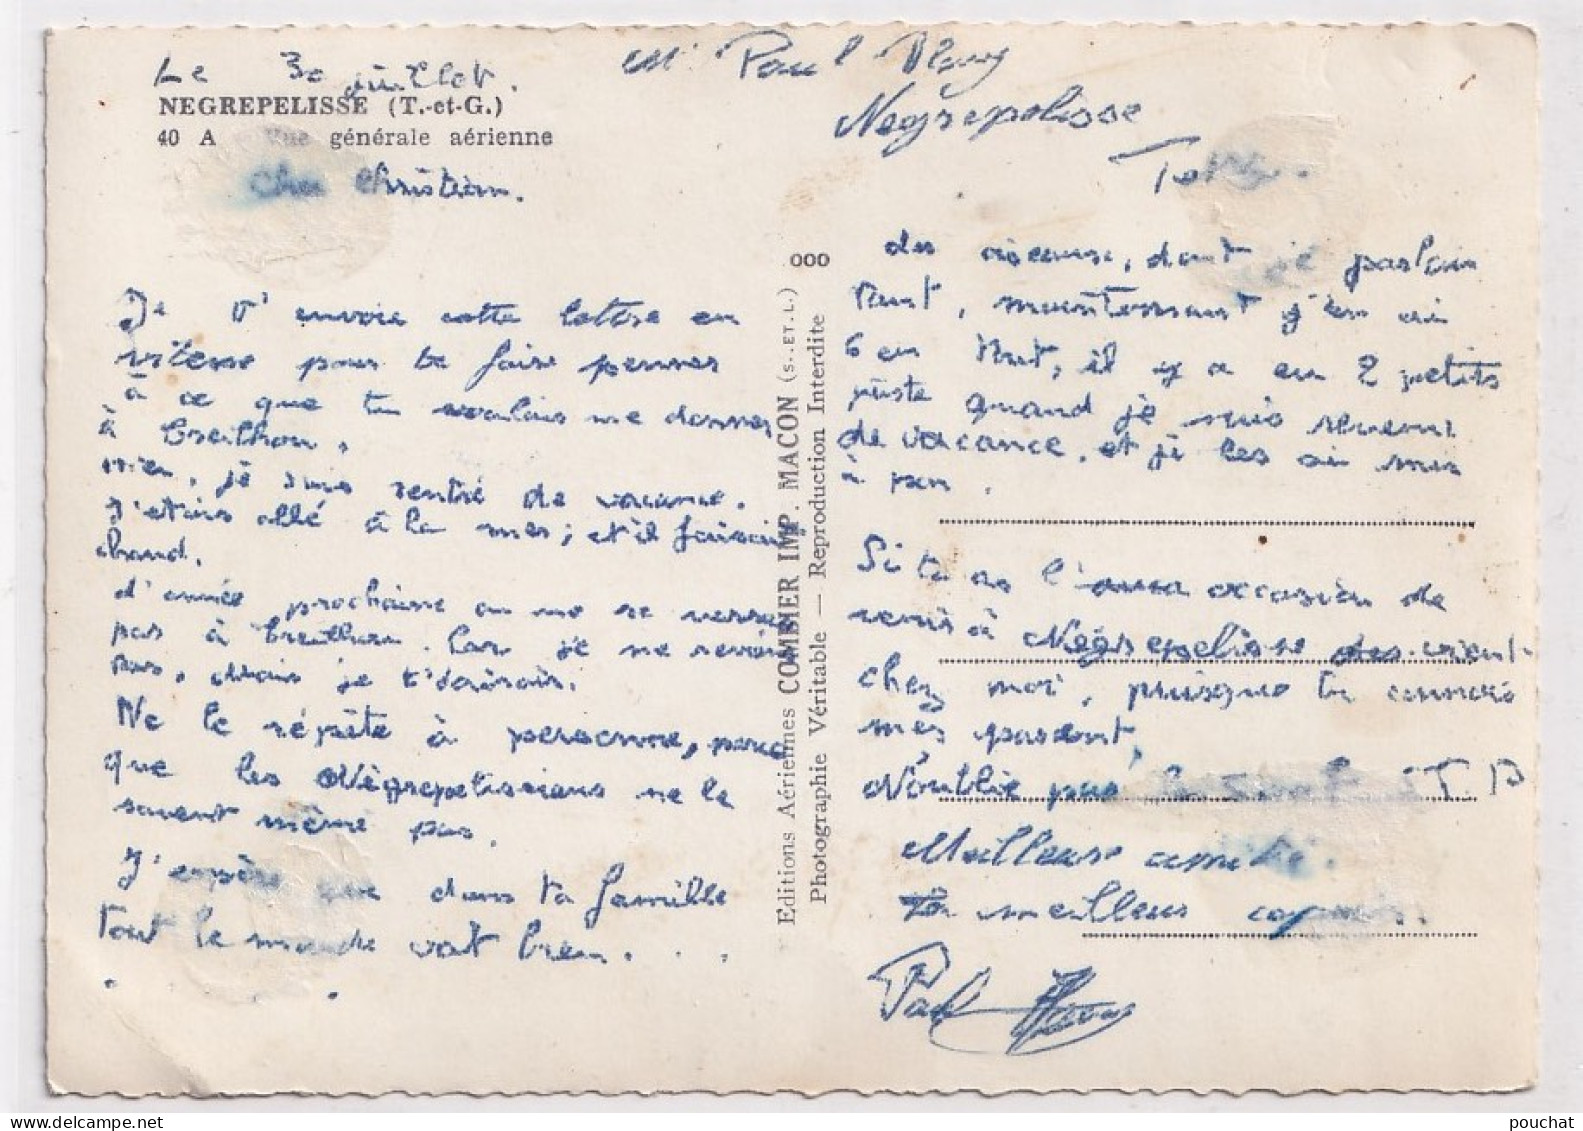 Le 30 juillet.
NEGREPELISSE (T.-et-G.)
40 A Vue générale aérienne
Cher Christian.
Je t'envoie cette lettre en
vitesse pour te faire penser
à ce que tu voulais me donner
à
rien, je suis rentré de vacance.
J'etais allé à la mer; et il faisait
chaud.
L'année prochaine on ne se verra
pas à Car je ne revien
pas, mais je t'écrirais.
Ne le répète à personne, parce
que les Nègrepelissiens ne le
savent même pas.
J'espère que dans ta famille
tout le monde vat bien. . .
. .
Editions Aériennes COMBIER IMP. MACON (S.. ET. L.)
Photographie Véritable — Reproduction Interdite
000
Mr Paul
Negrepelisse
des oiseaux, dont je parlais
tant, maintenant j'en ai
6 en tout, il y a eu 2 petits
juste quand je suis revenu
de vacance, et je les ai mis
à part.
Si tu as l' occasion de
venir à Négrepelisse vient
chez moi, puisque tu connais
mes parent,
N'oublie pas T.P
Meilleure amitié.
Ton meilleur copain.
Paul
pouchat
www.delcampe.net